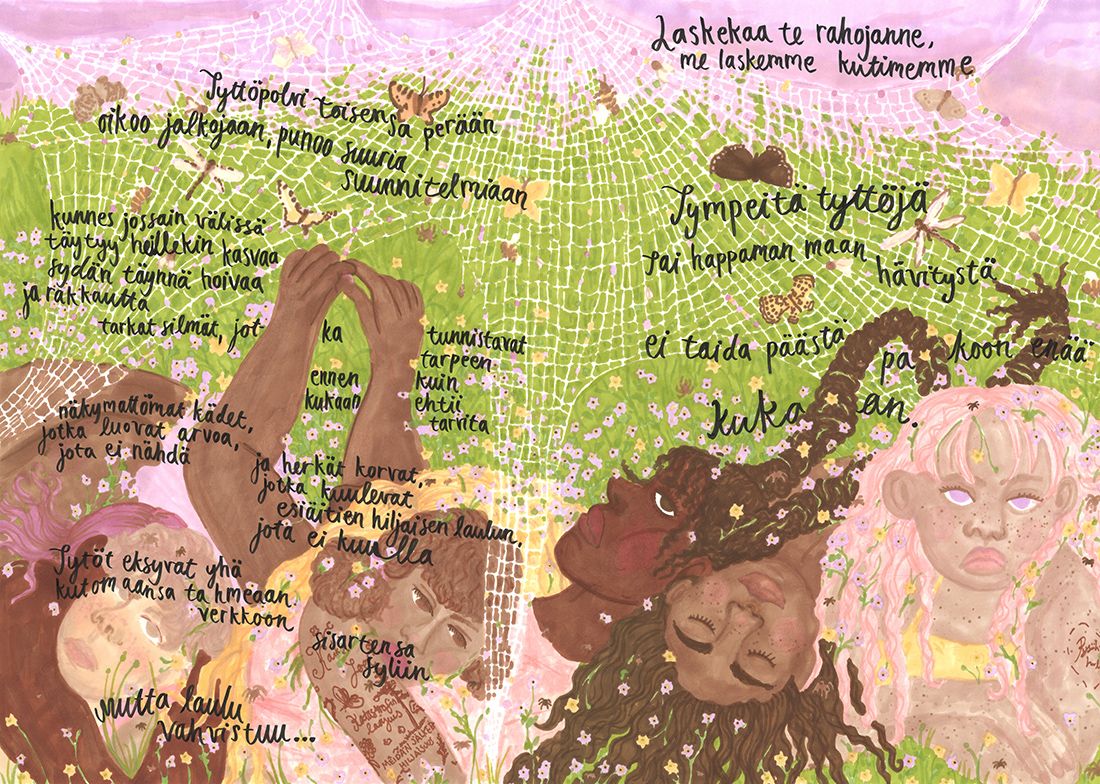 Tyttöpolvi toisensa perään
oikoo jalkojaan, punoo suuria
suunnitelmiaan
kunnes jossain välissä
täytyy heillekin kasvaa
sydän täynnä hoivaa
ja rakkautta
tarkat silmät, jot-ka tunnistavat
tarpeen
ennen kuin
kukaan ehtii
tarvita
näkymättömät kädet,
jotka luovat arvoa,
jota ei nähdä
ja herkät korvat,
jotka kuulevat
esiäitien hiljaisen laulun,
jota ei kuulla
Tytöt eksyvät yhä
kutomaansa tahmeaan
verkkoon
sisartensa
syliin
mutta laulu
vahvistuu...
MEIDÄN VÄLKEN
HILJAISUUS
Laskekaa te rahojanne,
me laskemme kutimemme
Tympeitä tyttöjä
tai happaman maan hävitystä
ei taida päästä pakoon enää
kukaan.